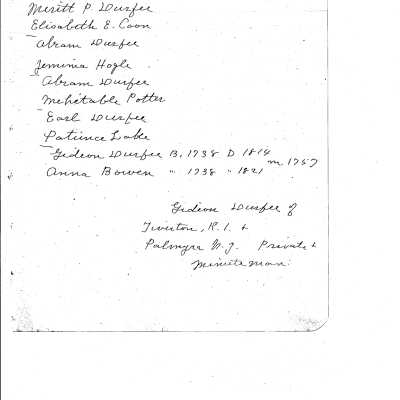 Meritt P. Durfee
Elisabeth E. Coon
Abram Durfee
Jemima Hogle
Abram Durfee
Mehitable Potter
Earl Durfee
Patience Lake
Gideon Durfee B. 1738 D 1814
m 1757
Anna Bowen " 1738 " 1821
Gideon Durfee of
Tiverton, R.I. &
Palmyra N.Y. Private &
Minute Man.